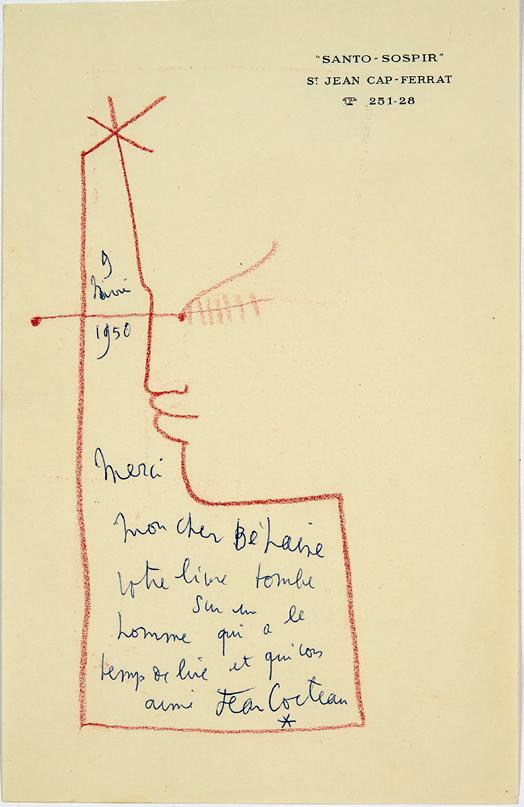 "SANTO-SOSPIR"
ST JEAN CAP-FERRAT
251-28
9
1950
Merci
mon cher Béhaine
votre livre tombe
sur un
homme qui a le
temps de lire et qui vous
aime Jean Cocteau